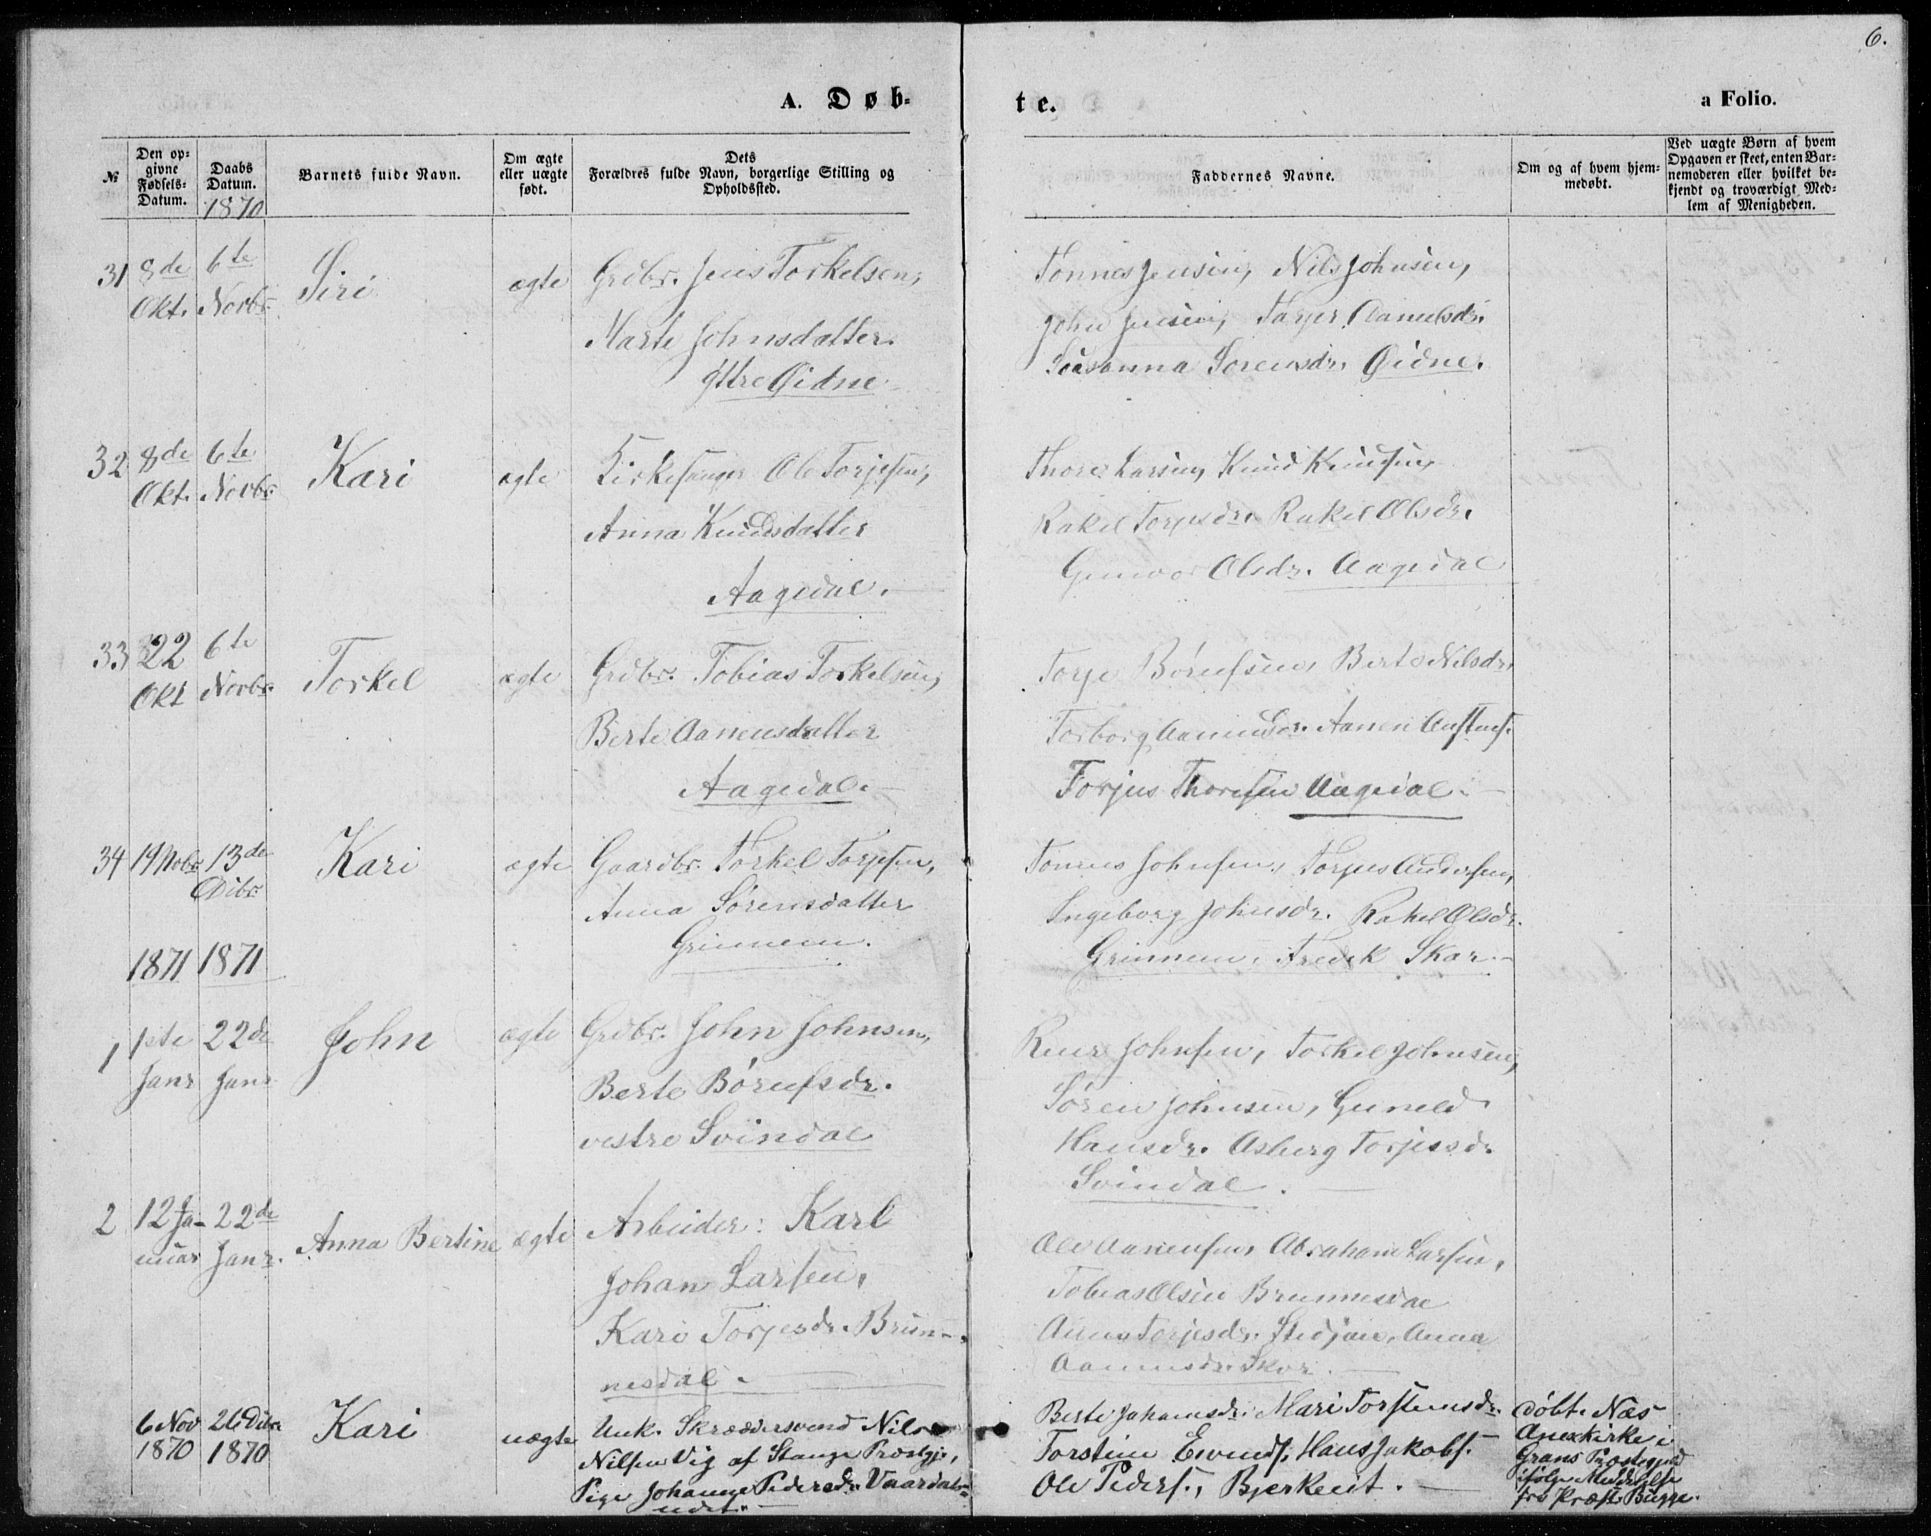 6.
A. Døb-
te.
a Folio.
№
Den op-
givne
Fødsels-
Datum.
Daabs
Datum.
1870
Barnets fulde Navn.
Om ægte
eller uægte
født.
Dets
Forældres fulde Navn, borgerlige Stilling og
Opholdssted.
Faddernes Navne.
Om og af hvem hjem-
medøbt.
Ved uægte Børn af hvem
Opgaven er skeet, enten Bar-
nemoderen eller hvilket be-
kjendt og troværdigt Med-
lem af Menigheden.
31 8de Okt. 6te Novbr. Siri ægte Grdbr. Jens Torkelsen,
Marte Johnsdatter.
yttre Øidne
Tønnes Jensen, Nils Johnsen,
John Jensen, Aanulsdr.
Susanna Sørensdr. Øidne.
32 8de Okt. 6te Novbr. Kari ægte Kirkesanger Ole Torjesen,
Anna Knudsdatter
Aagedal.
Thore Larsen, Knud Knudsen
Rakel Torjesdr. Rakel Olsdr.
Gunvor Olsdr. Aagedal
33 22 Okt 6te Novbr. Torkel ægte Grdbr. Tobias Torkelsen,
Berte Aanensdatter
Aagedal.
Torje Børufsen, Berte Nilsdr.
Torborg Aanensdr. Aanen
Torjus Thoresen Aagedal.
34 19 Nobr. 13de Dcbr. Kari ægte Gaardbr. Torkel Torjesen,
Anna Sørensdatter
Grinnem.
Tønnes Johnsen, Torjus
Ingeborg Johnsdr. Rakel Olsdr.
Grinnem, Fredrik Skar.
1871 1871
1 1ste Janr 22de Janr John ægte Grdbr. John Johnsen,
Berte Børufsdr.
vestre Svindal
Johnsen, Torkel Johnsen,
Søren Johnsen, Guneld
Hansdr. Asberg Torjesdr.
Svindal.
2 12 Ja-
nuar 22de Janr. Anna Bertine ægte Arbeider: Karl
Johan Larsen,
Kari Torjesdr. Brun-
nesdal.
Ole Aanensen, Abraham Larsen,
Tobias Olsen Brunnesdal
Anna Torjesdr. Anna
Aanensdr. Skar.
6 Nov 1870 26 Dcbr 1870 Kari uægte Unk. Skræddersvend Nils
Nilsen Vig af Stange Præstgj.,
Pige Johanne Pedersdr. Vaardals-
eiet.
Berte Johansdr. Mari Torstensdr.
Torstein Eivinds. Hans Jakobs.
Ole Peders.,
døbt. Næs
Anexkirke i
Grans Præstegjeld
ifølge Meddelelse
fra Præst Bugge.